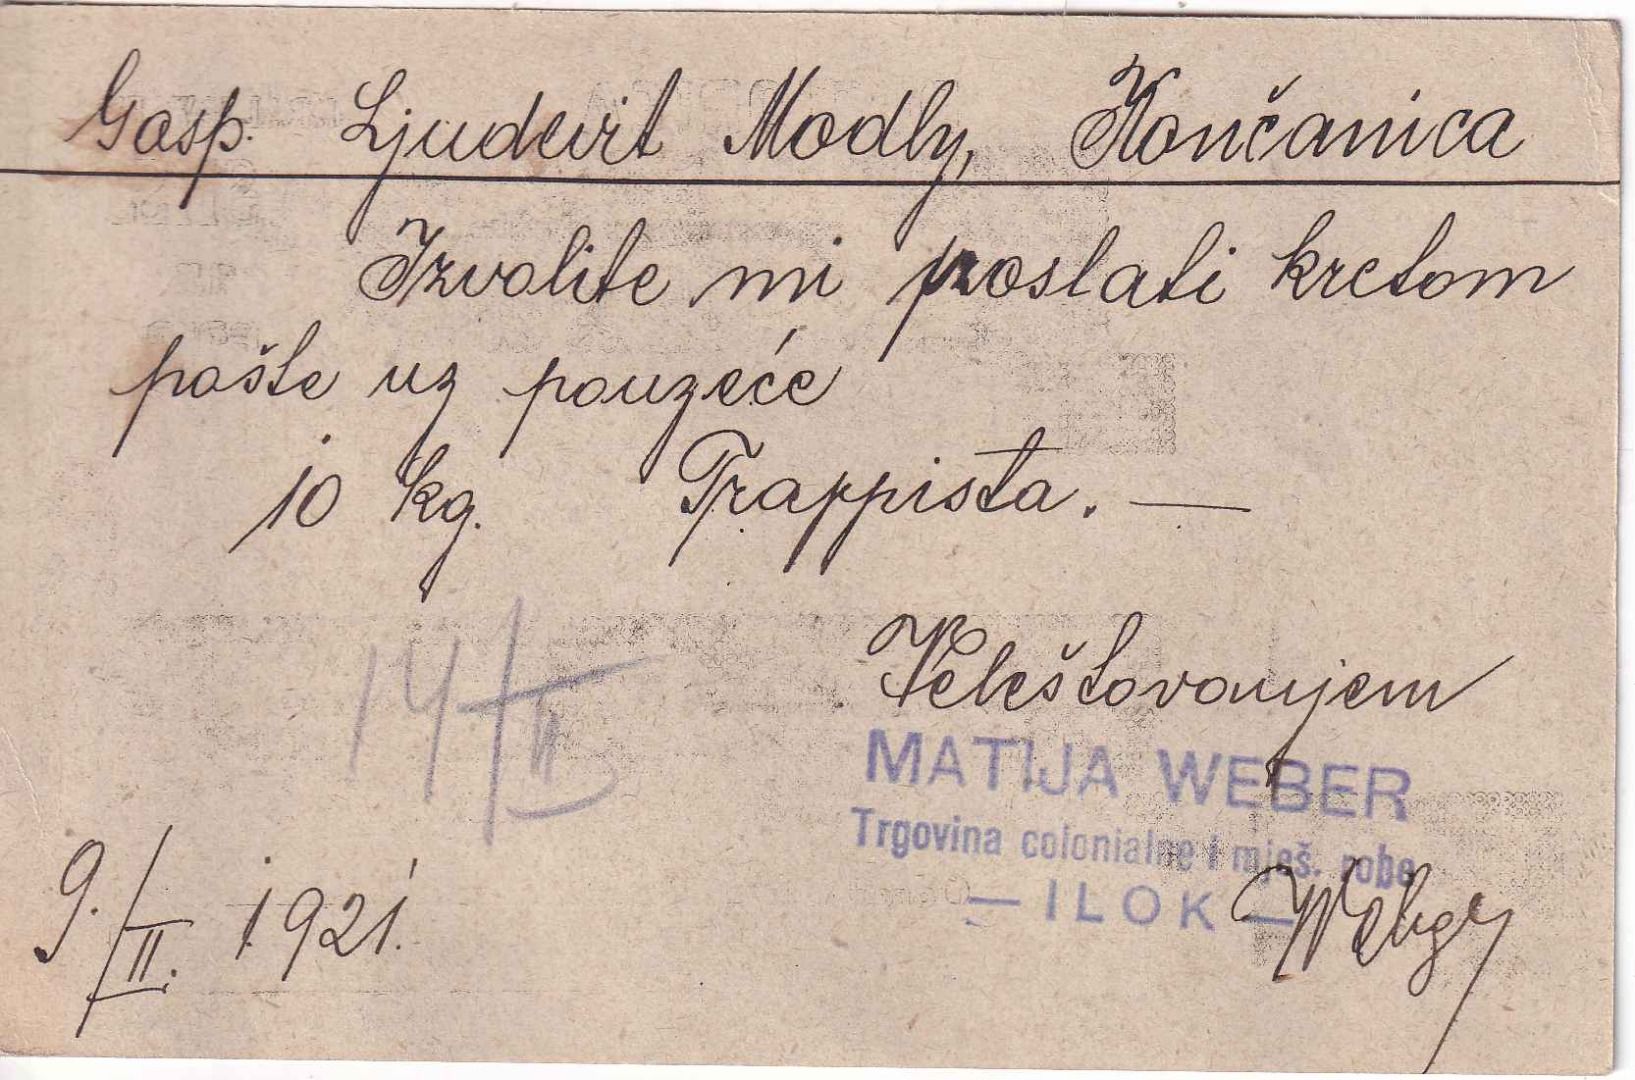 Gosp. Ljudevit Modly, Končanica
Izvolite mi poslati kretom
pošte uz pouzeće
10 kg. Trappista. —
Velištovanjem
14/II
MATIJA WEBER
Trgovina colonialne i mješ. robe
— ILOK —
9./II. 1921.
Weber